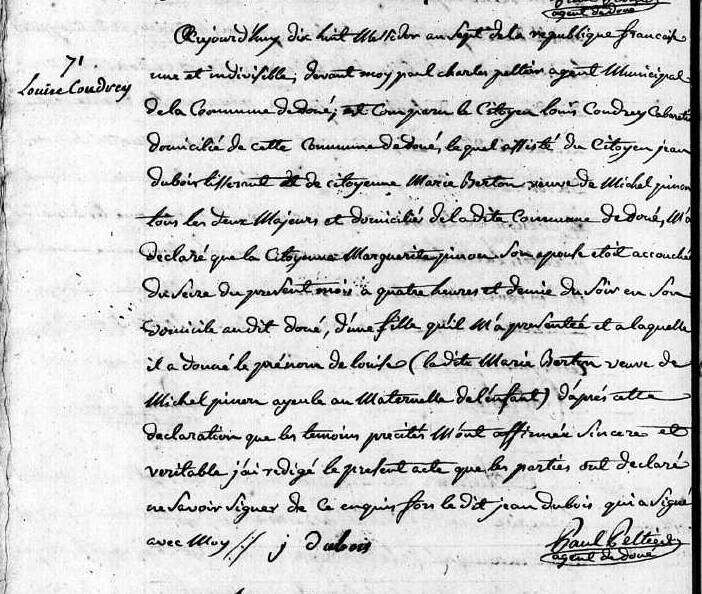 agent de doué
Aujourd'huy dix huit Messidor au sept de la republique francaise
71
une et indivisible, devant moy paul charles peltier agent Municipal
Louise Coudrey
de la Commune de doué, est comparu le Citoyen louis Coudrey Cabaretier
domicilié de cette Commune de doué, lequel assisté du Citoyen jean
dubois tisserant et de citoyenne Marie Berton veuve de Michel pinon
tous les deux Majeurs et domiciliés de la dite Commune de doué, M'a
declaré que la Citoyenne Marguerite pinon son epouse etoit accouchée
du seize du present mois a quatre heures et demie du Soir en son
domicile au dit doué, d'une fille qu'il M'a presentée et a laquelle
il a donné le prénom de louise (la dite Marie Berton veuve de
Michel pinon ayeule au Maternelle de l'enfant) d'aprés cette
declaration que les temoins precités M'ont affirmée sincere et
veritable j'ai redigé le present acte que les parties ont declaré
ne savoir signer de ce enquis fors le dit jean dubois qui a signé
avec Moy j dubois
Paul Peltier
agent de doué